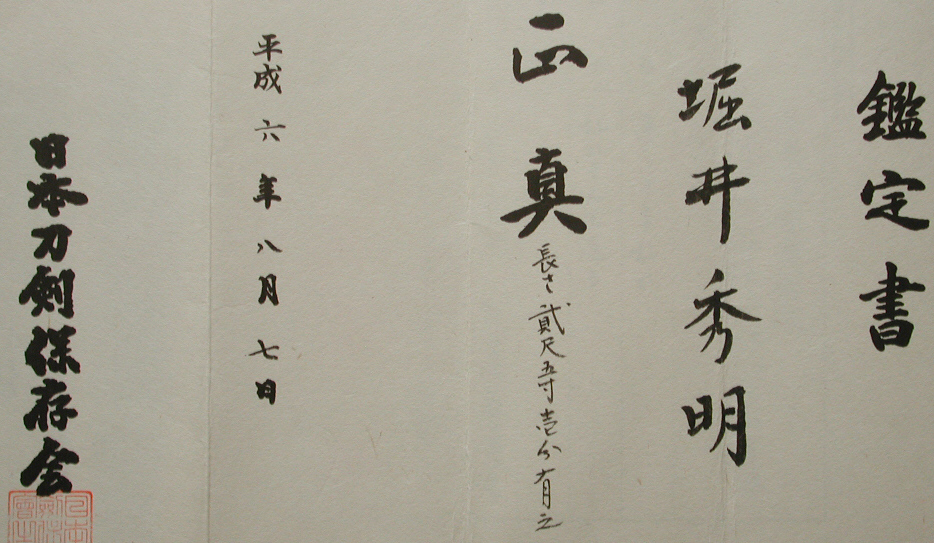 鑑定書
堀井秀明
正真
長さ貳尺五寸壱分有之
平成六年八月七日
日本刀剣保存会